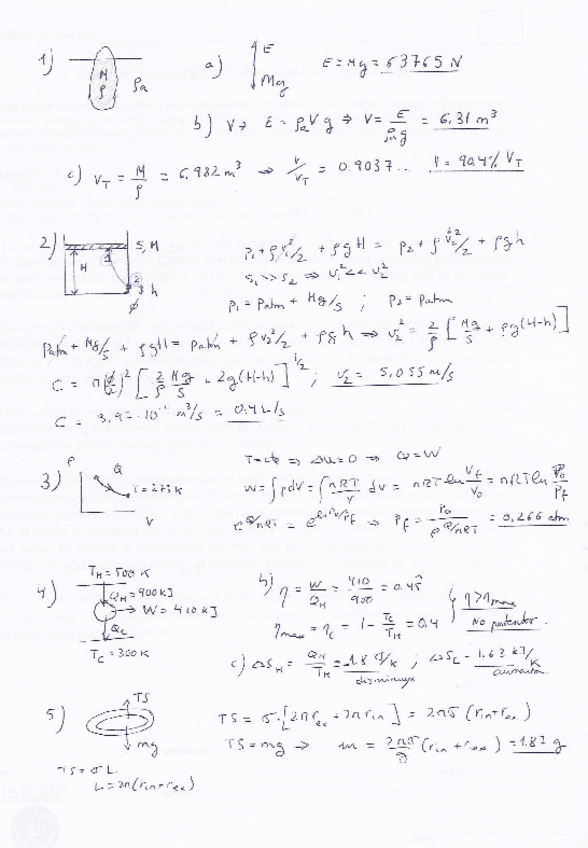 1)
M
ρ
ρa
a)
E
Mg
E = Mg = 63765 N
b) V→ E = ρa V g ⇒ V = E/ρa g = 6.31 m³
c) V_T = M/ρ = 6.982 m³ ⇒ V/V_T = 0.9037... V = 90.4% V_T
2)
S, M
H
1
2
h
φ
P₁ + ρ v₁²/2 + ρgH = P₂ + ρ v₂²/2 + ρgh
S₁ >> S₂ ⇒ v₁² << v₂²
P₁ = Patm + Mg/S ; P₂ = Patm
Patm + Mg/S + ρgH = Patm + ρv₂²/2 + ρgh ⇒ v₂² = 2/ρ [Mg/S + ρg(H-h)]
C = π(φ/2)² [2/ρ Mg/S + 2g(H-h)]^1/2 ; v₂ = 5.055 m/s
C = 3.9 · 10⁻⁴ m³/s = 0.4 L/s
3)
P
Q
T = 273 K
V
T = cte ⇒ ΔU = 0 ⇒ Q = W
W = ∫ p dV = ∫ nRT/V dV = nRT ln V_f/V₀ = nRT ln P₀/P_f
e^Q/nRT = e^ln P₀/P_f ⇒ P_f = P₀/e^Q/nRT = 0.266 atm
4)
T_H = 500 K
Q_H = 900 kJ
W = 410 kJ
Q_C
T_C = 300 K
b) η = W/Q_H = 410/900 = 0.45
η_max = η_c = 1 - T_C/T_H = 0.4
η > η_max
No potentor.
c) ΔS_H = Q_H/T_H = -1.8 kJ/K ; ΔS_L = 1.63 kJ/K
disminuye
aumenta
5)
TS
mg
TS = σ · [2πr_ex + 2πr_in] = 2πσ (r_in + r_ex)
TS = mg → m = 2πσ/g (r_in + r_ex) = 1.87 g
TS = σ L
L = 2π(r_in + r_ex)